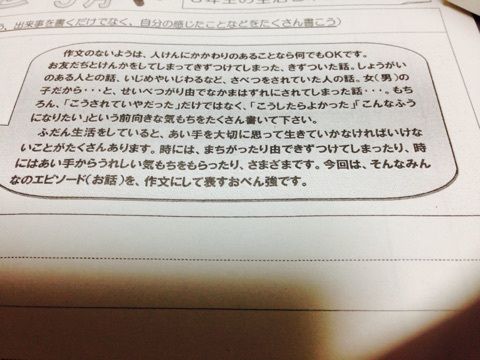 う、出来事を書くだけでなく、自分の感じたことなどをたくさん書こう)
作文のないようは、人けんにかかわりのあることなら何でもOKです。
お友だちとけんかをしてしまってきずつけてしまった、きずついた話。しょうがい
のある人との話、いじめやいじわるなど、さべつをされていた人の話。女(男)の
子だから・・・と、せいべつがり由でなかまはずれにされてしまった話・・・。もち
ろん、「こうされていやだった」だけではなく、「こうしたらよかった」「こんなふう
になりたい」という前向きな気もちをたくさん書いて下さい。
ふだん生活をしていると、あい手を大切に思って生きていかなければいけな
いことがたくさんあります。時には、まちがったり由できずつけてしまったり、時
にはあい手からうれしい気もちをもらったり、さまざまです。今回は、そんなみん
なのエピソード(お話)を、作文にして表すおべん強です。